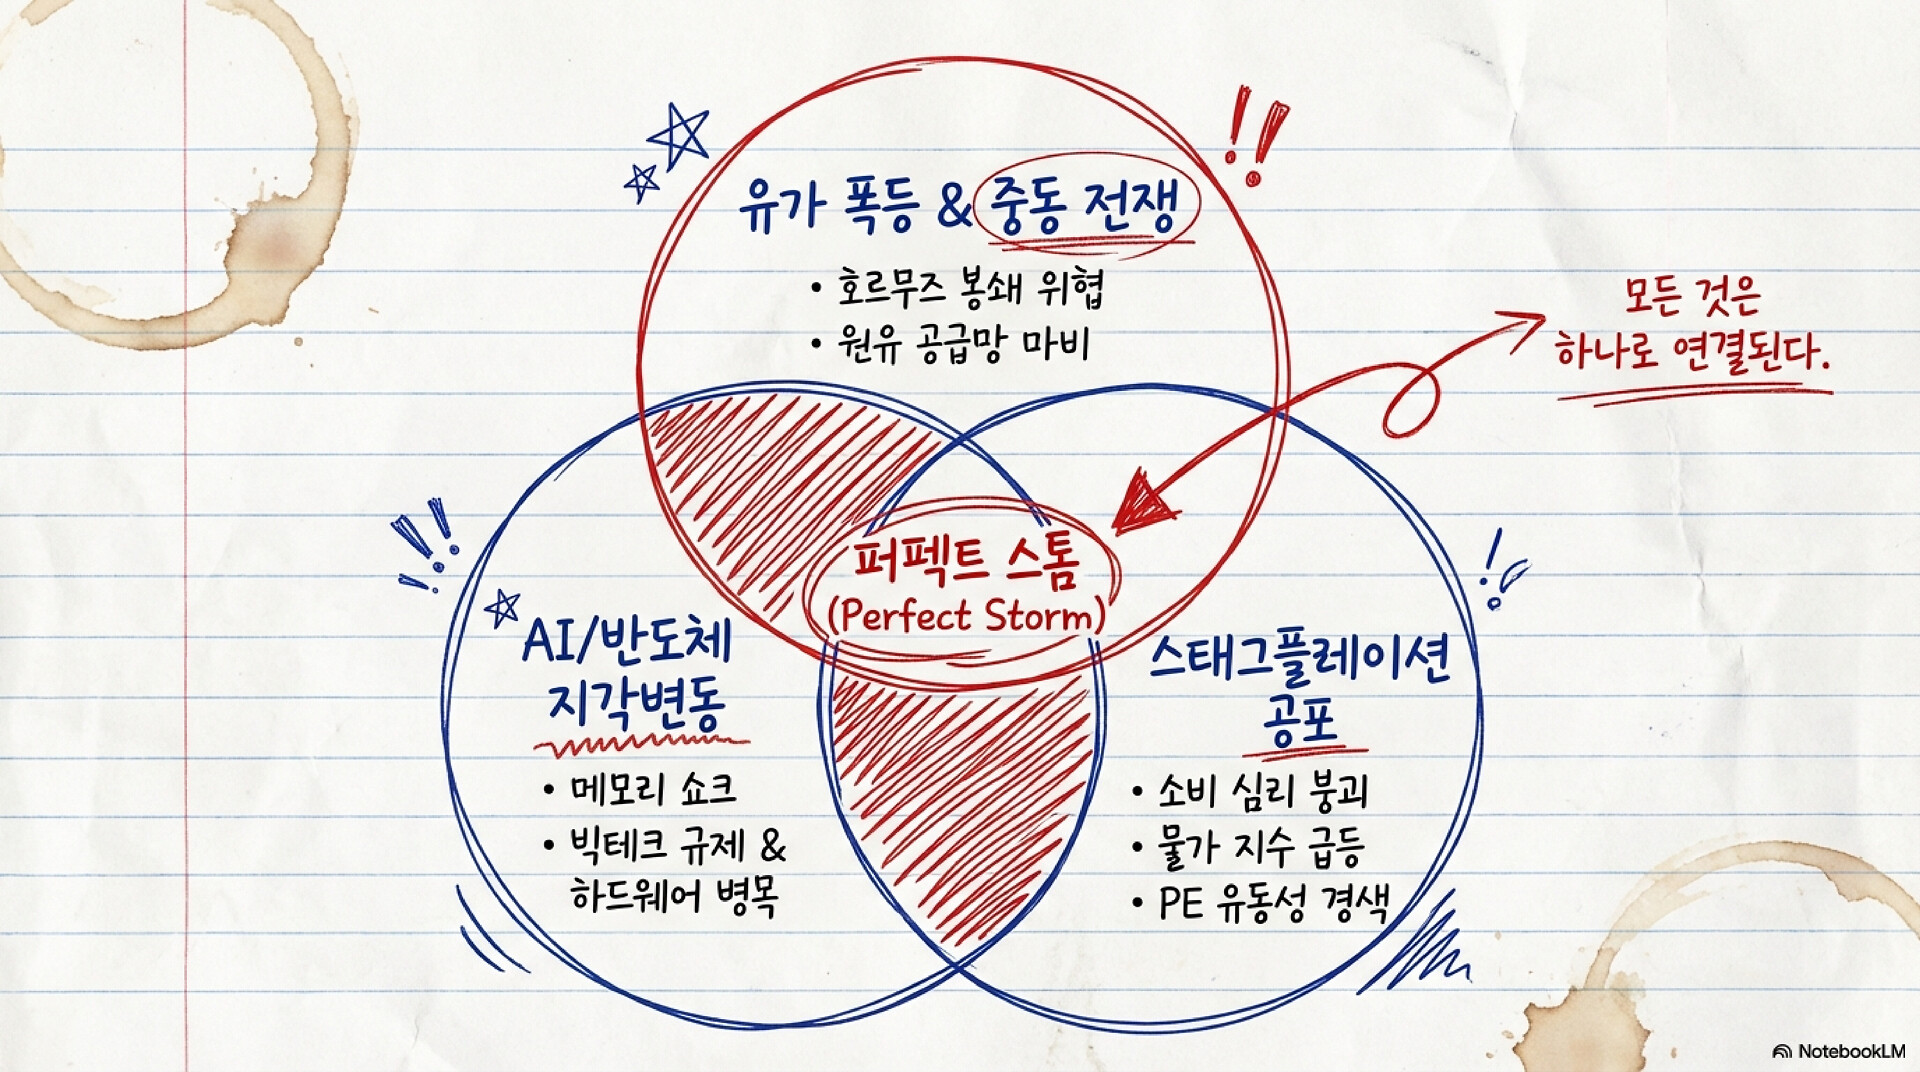 유가 폭등 & 중동 전쟁
• 호르무즈 봉쇄 위협
• 원유 공급망 마비
모든 것은
하나로 연결된다.
퍼펙트 스톰
(Perfect Storm)
AI/반도체
지각변동
• 메모리 쇼크
• 빅테크 규제 &
하드웨어 병목
스태그플레이션
공포
• 소비 심리 붕괴
• 물가 지수 급등
• PE 유동성 경색
NotebookLM